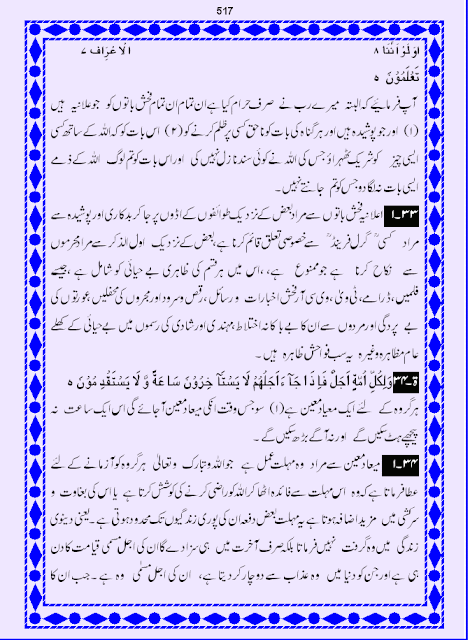 517
اولو اننا ۸ الاعراف ۷
تَعْلَمُوْنَ ہ
آپ فرمائیے کہ البتہ میرے رب نے صرف حرام کیا ہے ان تمام ان تمام فحش باتوں کو جو علانیہ ہیں
(۱) اور جو پوشیدہ ہیں اور ہر گناہ کی بات کو نا حق کسی پر ظلم کرنے کو (۲) اس بات کو کہ اللہ کے ساتھ کسی
ایسی چیز کو شریک ٹھہراؤ جس کی اللہ نے کوئی سند نازل نہیں کی اور اس بات کو تم لوگ اللہ کے ذمے
ایسی بات نہ لگا دو جس کو تم جانتے نہیں۔
۳۳۔۱ اعلانیہ فحش باتوں سے مراد بعض کے نزدیک طوائفوں کے اڈوں پر جا کر بدکاری اور پوشیدہ سے
مراد کسی "گرل فرینڈ" سے خصوصی تعلق قائم کرنا ہے بعض کے نزدیک اول الذکر سے مراد محرموں
سے نکاح کرنا ہے جو ممنوع ہے،، اس میں ہر قسم کی ظاہری بے حیائی کو شامل ہے، جیسے
فلمیں، ڈرامے، ٹی وی، وی سی آر فحش اخبارات و رسائل، رقص و سرود اور مجروں کی محفلیں، عورتوں کی
بے پردگی اور مردوں سے ان کا بے باکانہ اختلاط، مہندی اور شادی کی رسموں میں بے حیائی کے کھلے
عام مظاہر وغیرہ یہ سب فواحش ظاہرہ ہیں۔
۳۴۔ۃ وَلِكُلِّ اُمَّةٍ اَجَلٌ فَاِذَا جَآءَ اَجَلُهُمْ لَا يَسْتَاْخِرُوْنَ سَاعَةً وَّ لَا يَسْتَقْدِمُوْنَ ہ
ہر گروہ کے لئے ایک میعاد معین ہے (۱) سو جس وقت انکی میعاد معین آجائے گی اس ایک ساعت نہ
پیچھے ہٹ سکیں گے اور نہ آگے بڑھ سکیں گے۔
۳۴۔۱ میعاد معین سے مراد وہ مہلت عمل ہے جو اللہ تبارک وتعالیٰ ہر گروہ کو آزمانے کے لئے
عطا فرماتا ہے کہ وہ اس مہلت سے فائدہ اٹھا کر اللہ کو راضی کرنے کی کوشش کرتا ہے یا اس کی بغاوت و
سرکشی میں مزید اضافہ ہوتا ہے یہ مہلت بعض دفعہ ان کی پوری زندگیوں تک محدود ہوتی ہے۔ یعنی دنیوی
زندگی میں وہ گرفت نہیں فرماتا بلکہ صرف آخرت میں ہی سزا دے گا ان کی اجل مسمی قیامت کا دن
ہی ہے اور جن کو دنیا میں وہ عذاب سے دو چار کر دیتا ہے، ان کی اجل مسمٰی وہ ہے۔ جب ان کا